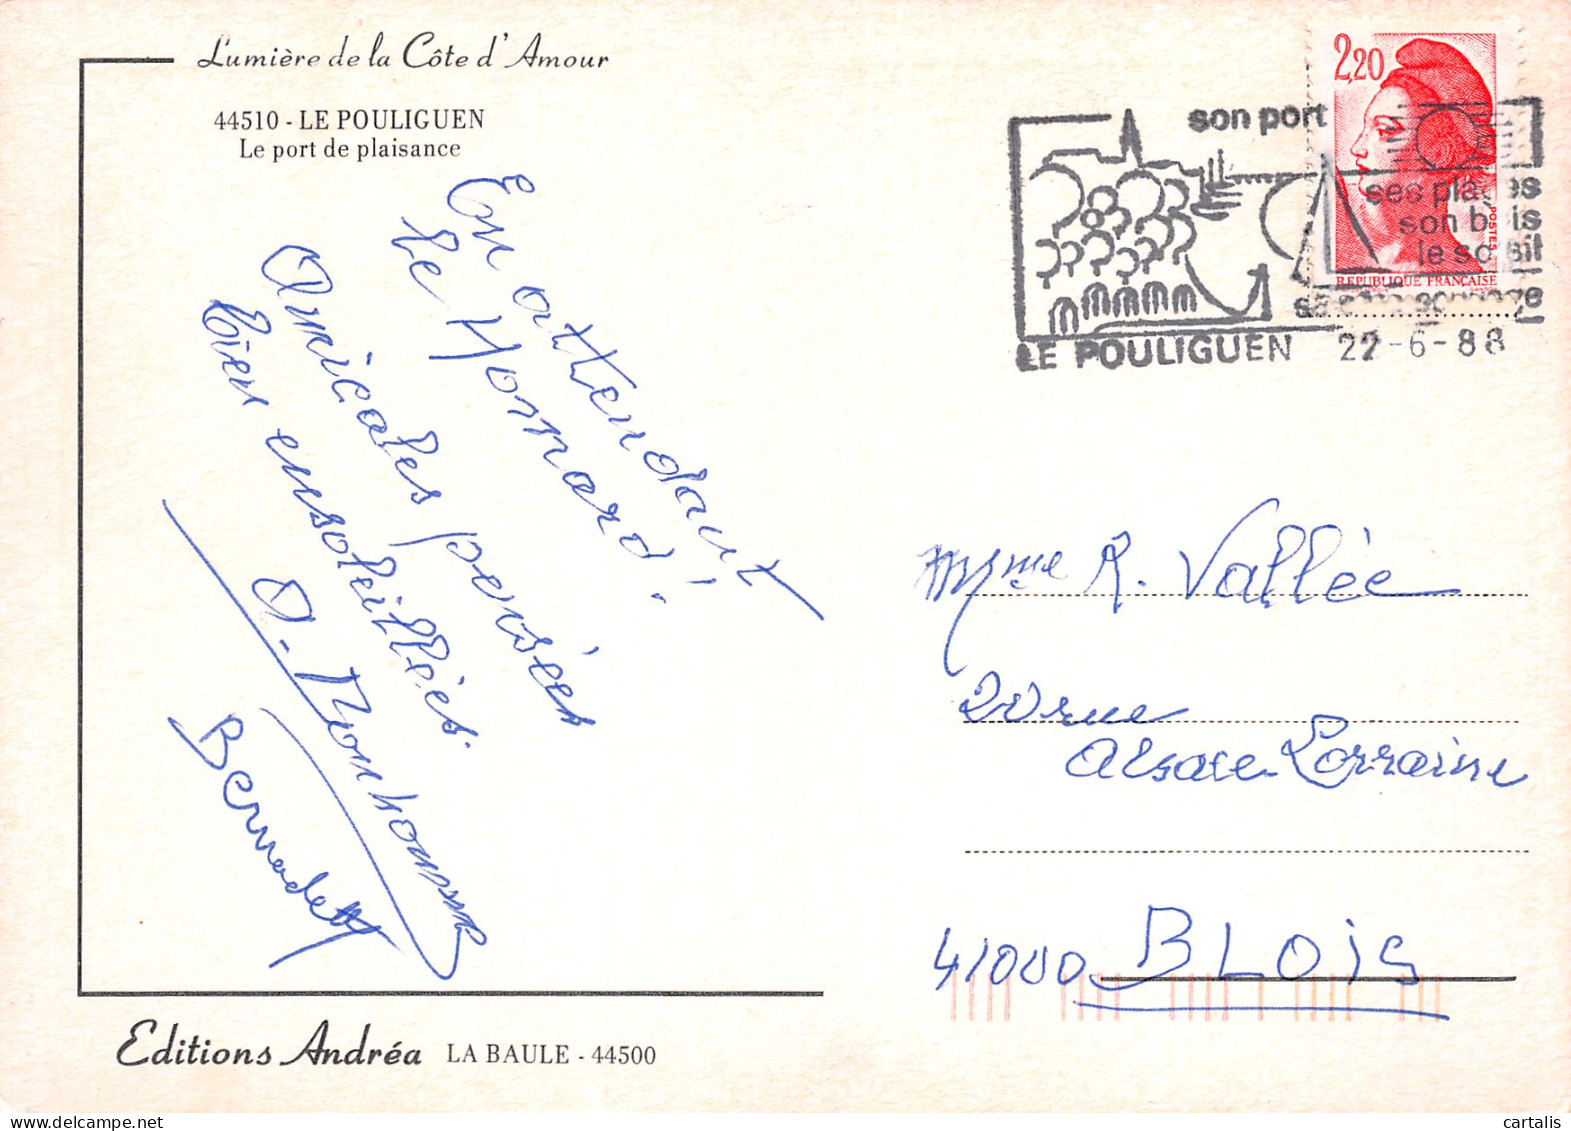 Lumière de la Côte d'Amour
44510 - LE POULIGUEN
Le port de plaisance
En attendant
le Homard!
Amicales pensées
bien ensoleillées.
Bernadette
Editions Andréa LA BAULE - 44500
2,20
POSTES
REPUBLIQUE FRANÇAISE
son port
ses plages
son bois
le soleil
LE POULIGUEN 22-6-88
Mme R. Vallée
20 rue
Alsace-Lorraine
41000 BLOIS
cartalis